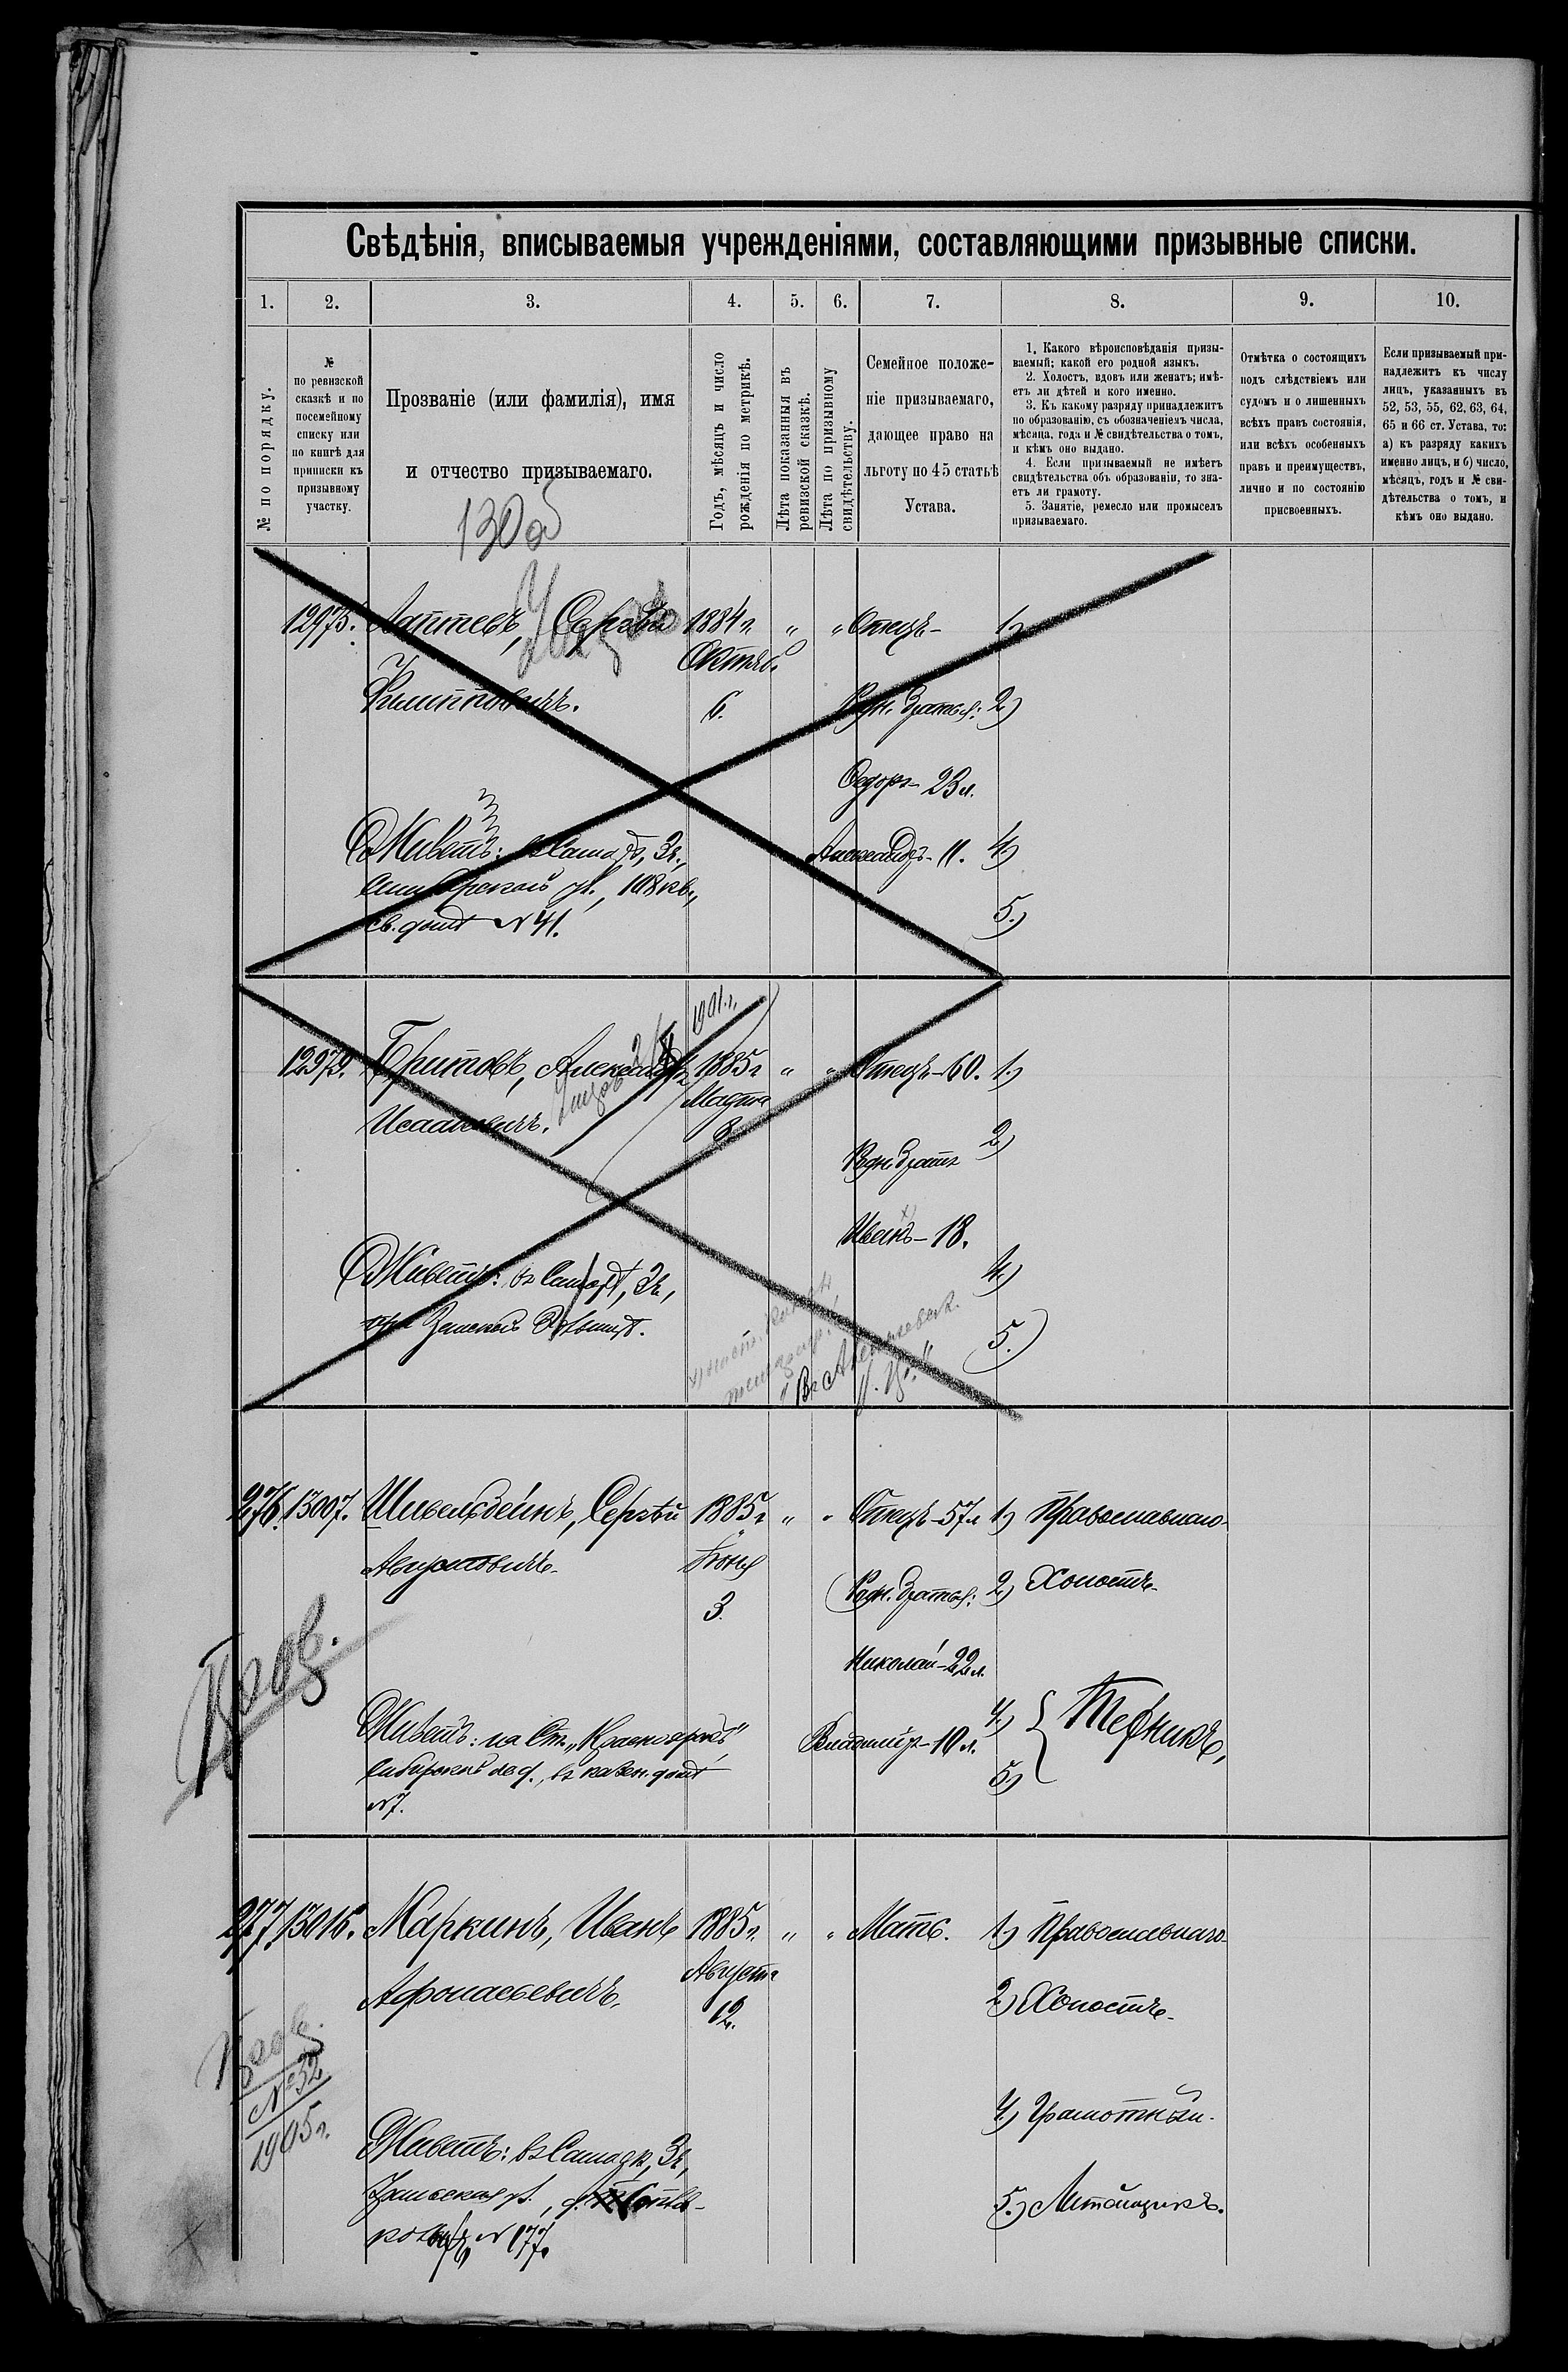 Свѣдѣнія, вписываемыя учрежденіями, составляющими призывные списки.
1. 2. 3. 4. 5. 6. 7. 8. 9. 10.
№ по порядку.
№
по ревизской
сказкѣ и по
посемейному
списку или
по книгѣ для
приписки къ
призывному
участку.
Прозваніе (или фамилія), имя
и отчество призываемаго.
Годъ, мѣсяцъ и число
рожденія по метрикѣ.
Лѣта показанныя въ
ревизской сказкѣ.
Лѣта по призывному
свидѣтельству.
Семейное положе-
ніе призываемаго,
дающее право на
льготу по 45 статьѣ
Устава.
1. Какого вѣроисповѣданія призы-
ваемый; какой его родной языкъ.
2. Холостъ, вдовъ или женатъ; имѣ-
етъ ли дѣтей и кого именно.
3. Къ какому разряду принадлежитъ
по образованію, съ обозначеніемъ числа,
мѣсяца, года и № свидѣтельства о томъ,
и кѣмъ оно выдано.
4. Если призываемый не имѣетъ
свидѣтельства объ образованіи, то зна-
етъ ли грамоту.
5. Занятіе, ремесло или промыселъ
призываемаго.
Отмѣтка о состоящихъ
подъ слѣдствіемъ или
судомъ и о лишенныхъ
всѣхъ правъ состоянія,
или всѣхъ особенныхъ
правъ и преимуществъ,
лично и по состоянію
присвоенныхъ.
Если призываемый при-
надлежитъ къ числу
лицъ, указанныхъ въ
52, 53, 55, 62, 63, 64,
65 и 66 ст. Устава, то:
а) къ разряду какихъ
именно лицъ, и б) число,
мѣсяцъ, годъ и № сви-
дѣтельства о томъ, и
кѣмъ оно выдано.
130
12975. Лаптевъ, Сергѣй 1884 г. " " Отецъ- 1)
Октяб.
Филипповичъ. 6. Родн. братья: 2)
Федоръ- 23 л.
Живетъ: въ Самарѣ, 3 ч., Александръ- 11. 4)
Симбирской ул., 108 кв.,
св. домѣ N 41. 5.)
1901 г.
12979. Бритовъ, Александръ 1885 г " " Отецъ-60. 1.)
Марта
Исааковичъ. 3 Родн. братъ 2)
Иванъ- 18.
Живетъ: въ Самарѣ, 3 ч., 4)
при Земской Больницѣ. 5.)
276. 13007. Шивельбейнъ, Сергѣй 1885 г " " Отецъ-57 л 1) Православнаго-
Августовичъ- Іюня Родн. братья: 2) Холостъ-
3. Николай-22 л.
Живетъ: на Ст. „Красноярскъ" Владиміръ-10 л. 4) Техникъ,
Сибирской ж.д., въ казен. домѣ 5)
N 7.
277. 13015. Маркинъ, Иванъ 1885 г. " " Мать. 1) Православнаго-
Августа
Афонасьевичъ, 12. 2) Холостъ-
№ 32
1905 г.
4.) Грамотный.
Живетъ: въ Самарѣ, 3 ч.,
Уральская ул.,
N 177. 5.)